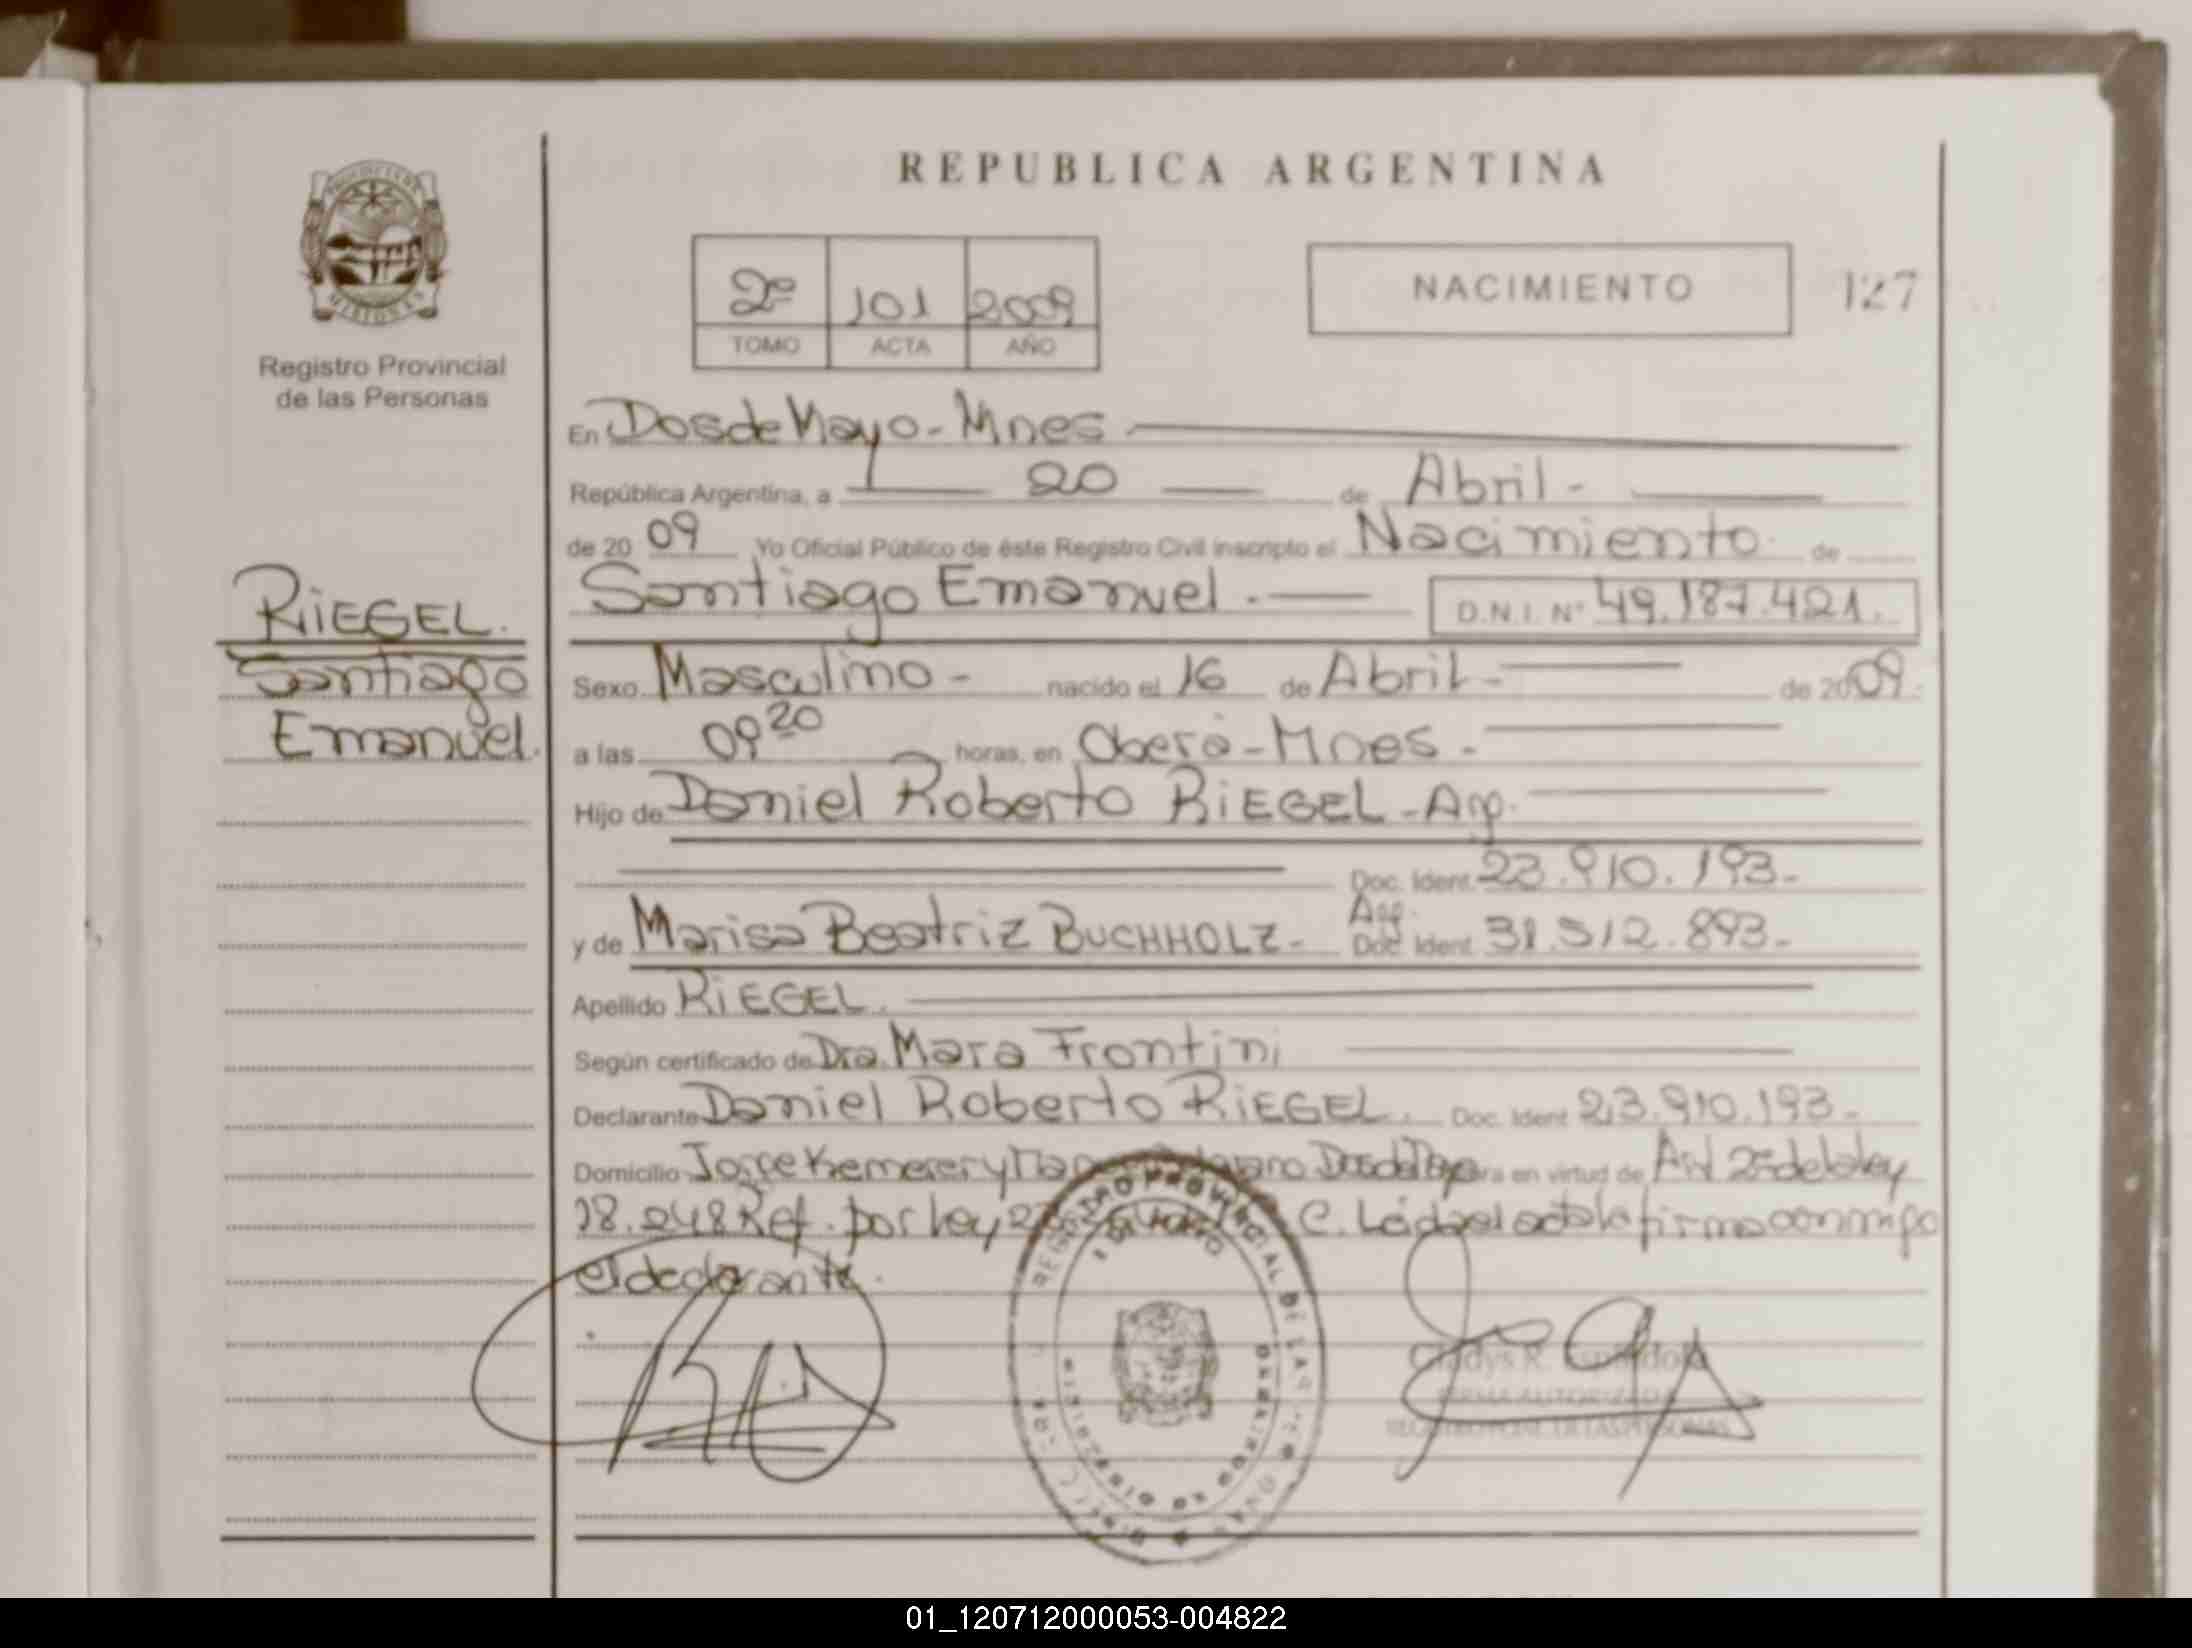 REPUBLICA ARGENTINA
2º 101 2009
TOMO ACTA AÑO
NACIMIENTO 127
Registro Provincial
de las Personas
RiEGEL.
Santiago
Emanuel.
En Dos de Mayo - Mnes
República Argentina, a 20 de Abril -
de 2009 Yo Oficial Público de éste Registro Civil inscripto el Nacimiento de
Santiago Emanuel . D.N.I. Nº 49.187.421.
Sexo Masculino - nacido el 16 de Abril - de 2009
a las 09 20 horas, en Oberá - Mnes -
Hijo de Daniel Roberto RiEGEL - Arg.
Doc. Ident. 23.910.193 -
y de Marisa Beatriz BUCHHOLZ - Arg. Doc. Ident. 31.512.893 -
Apellido RiEGEL.
Según certificado de Dra. Mara Frontini
Declarante Daniel Roberto RiEGEL. Doc. Ident. 23.910.193 -
Domicilio Jorge Kemerer y Dos de Mayo en virtud de Art 25 de la ley
18.248 Ref. por Ley C. Leída el acta la firma conmigo
el declarante.
REGISTRO PROVINCIAL DE LAS
Gladys R. Espindola
FIRMA AUTORIZADA
REGISTRO PCIAL. DE LAS PERSONAS
01_120712000053-004822